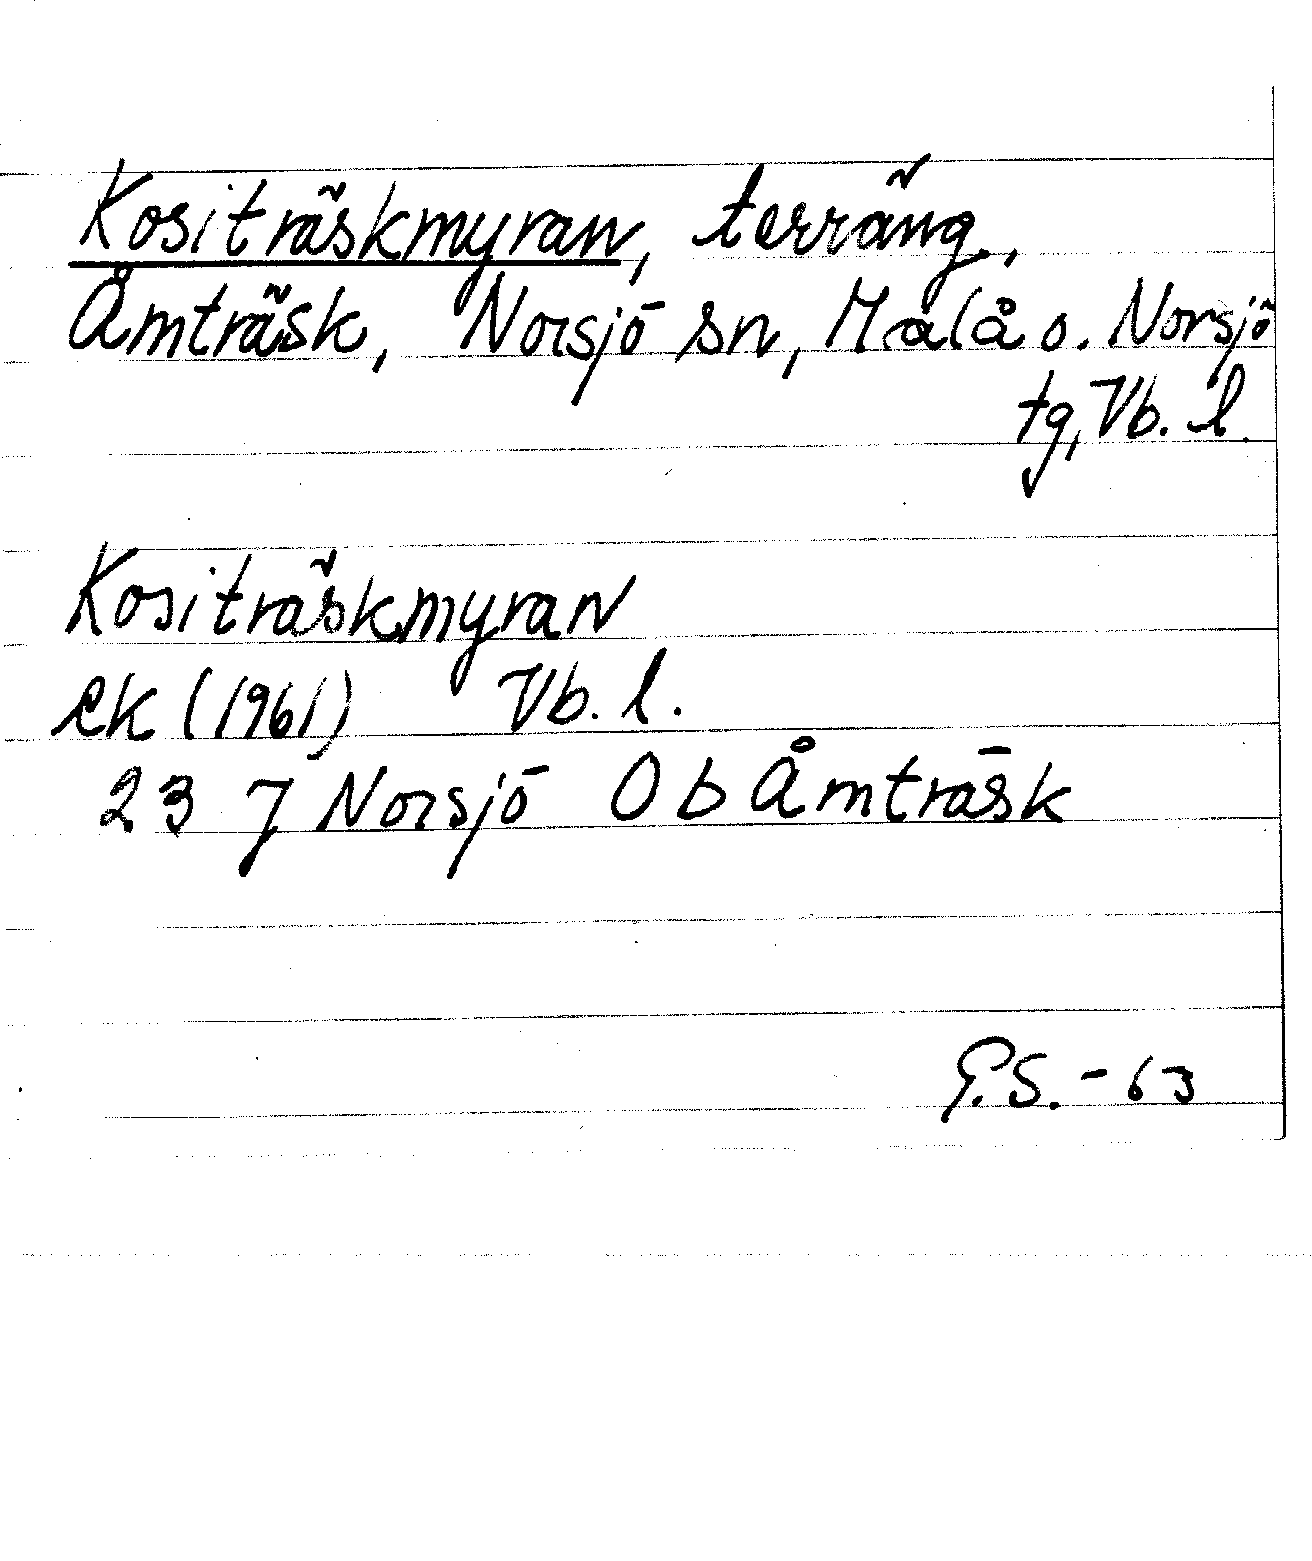 Kositräskmyran, terräng.,
Åmträsk, Norsjö sn, Malå o. Norsjö
tg, Vb. l.
Kositräskmyran
ek (1961) Vb. l.
23 J Norsjö 0 b Åmträsk
G.S. - 63